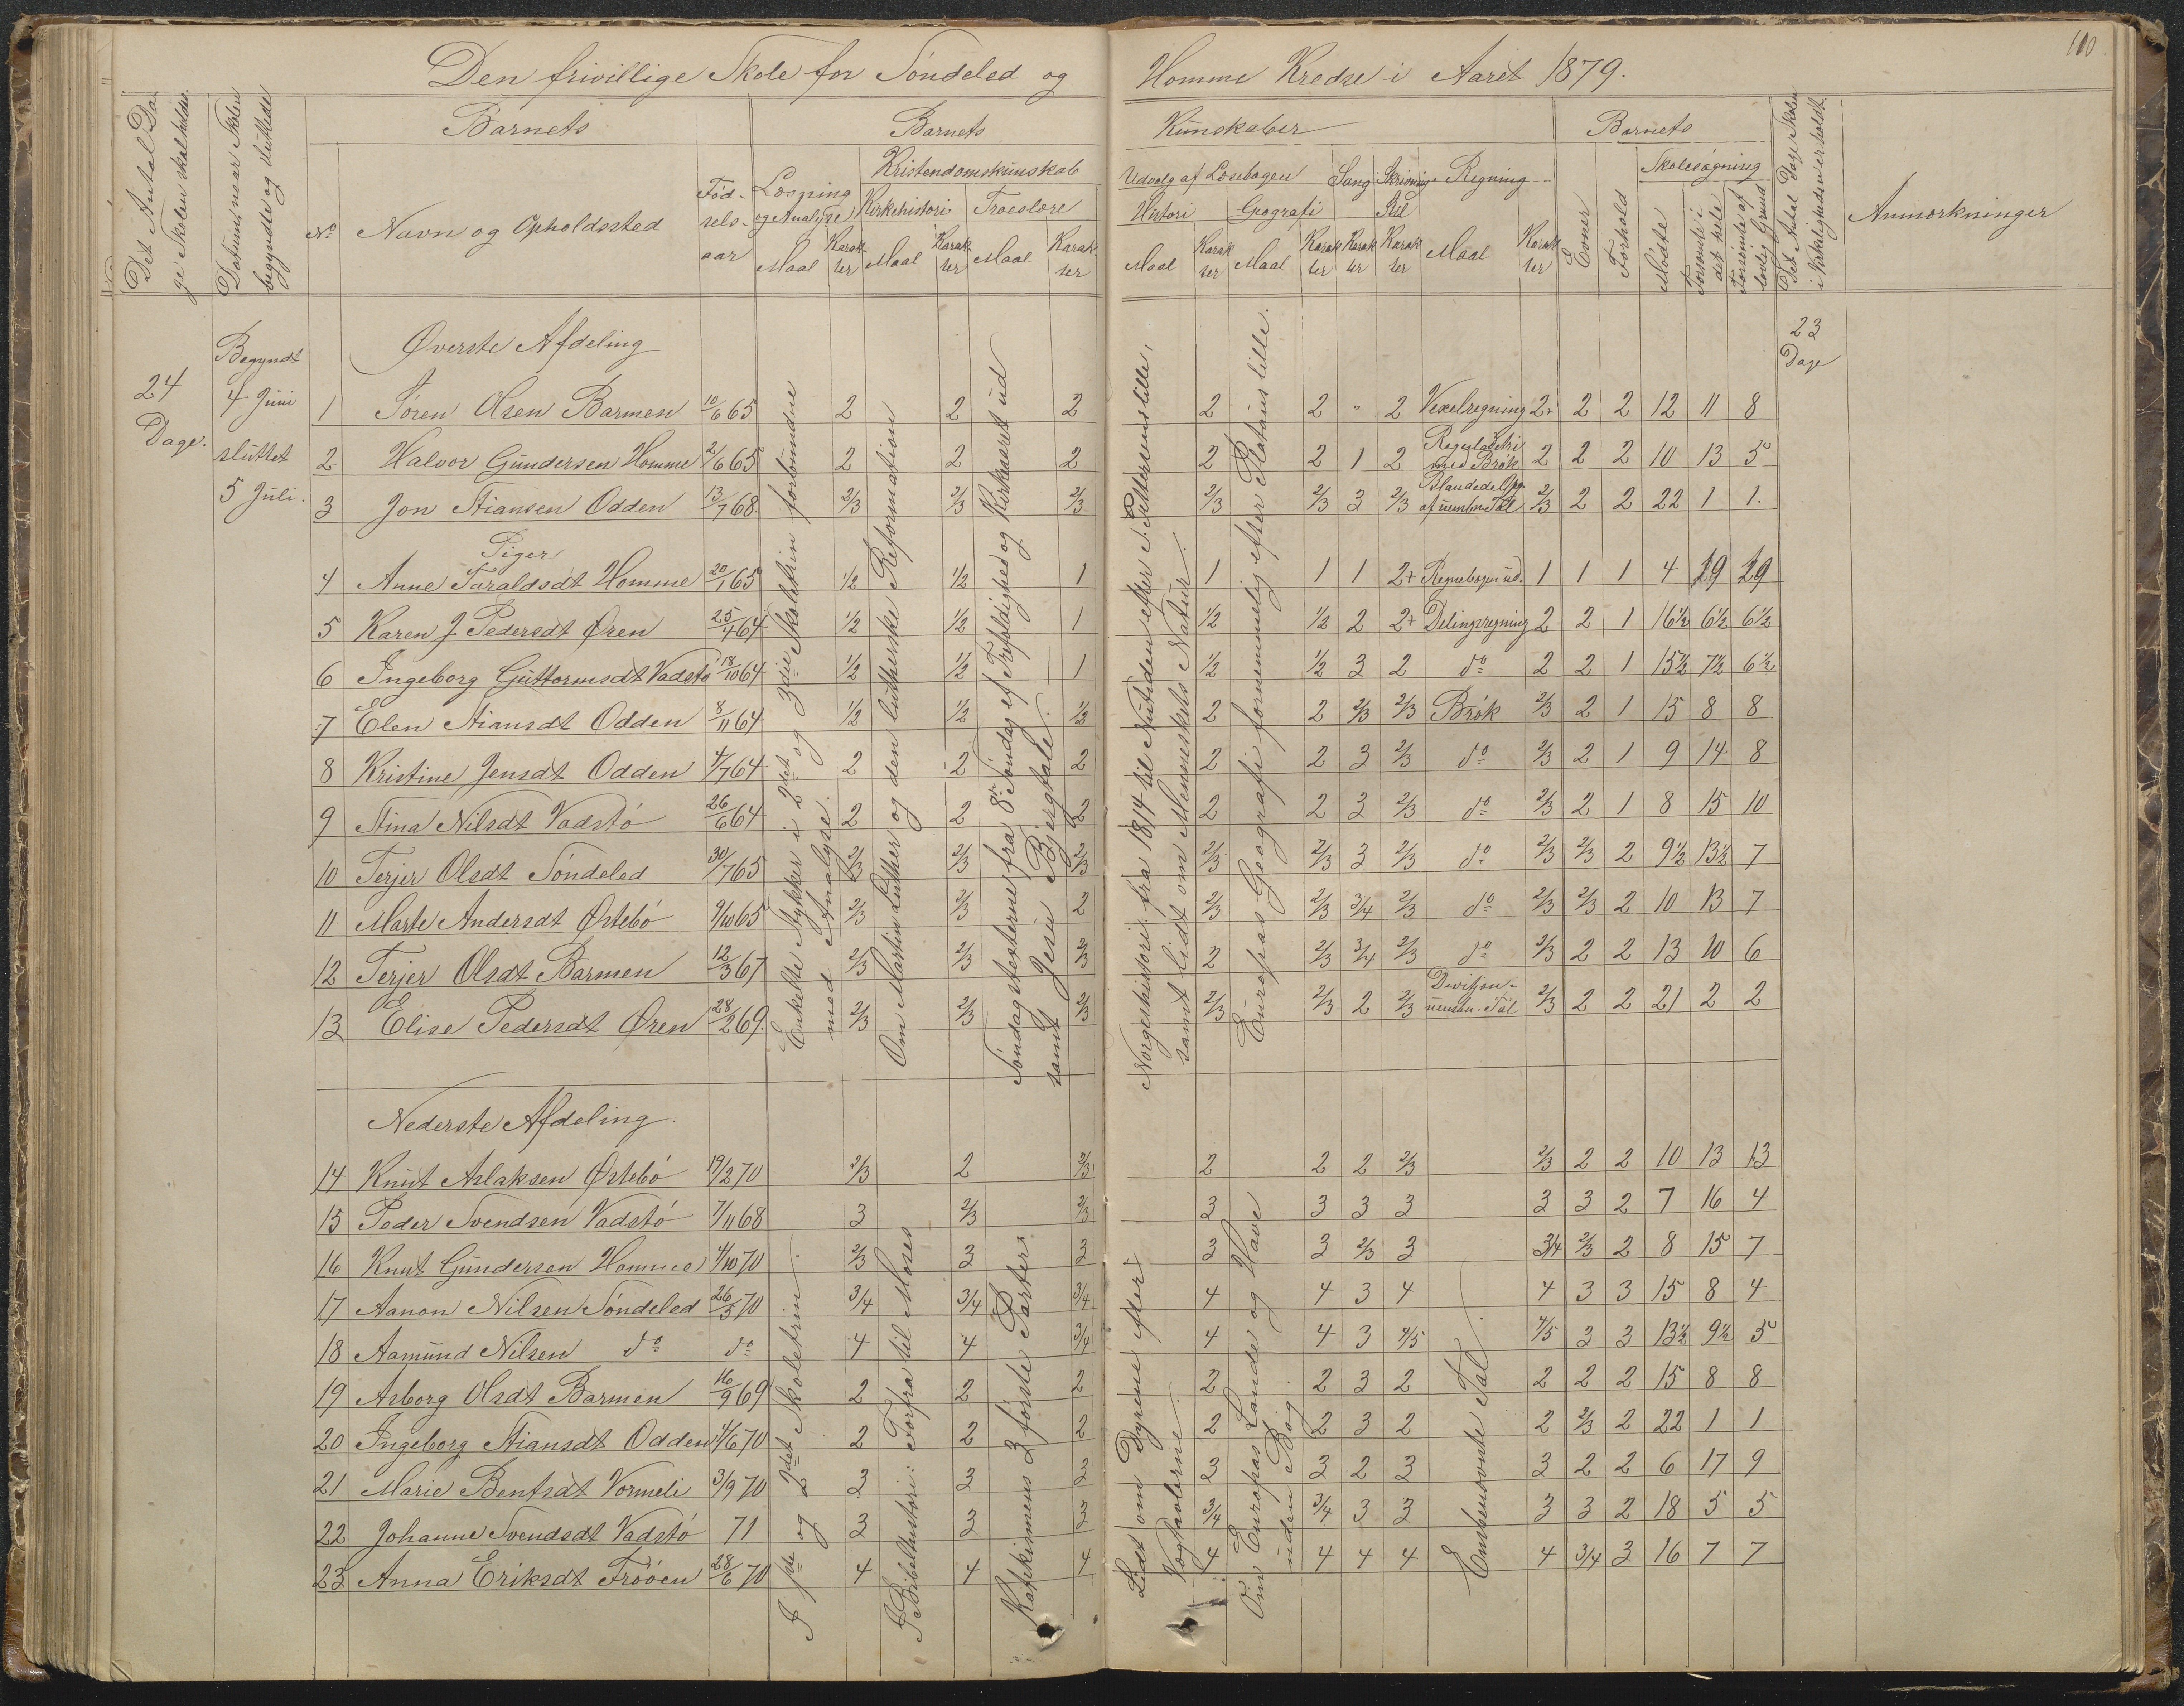 110.
Den frivillige Skole for Søndeled og Homme Kredse i Aaret 1879.
Det Antal Da-
ge Skolen skal holdes.
Datum, naar Skolen
begyndte og sluttede
Barnets
Barnets
Kundskaber
Barnets
Det Antal Dage Skolen
i Virkeligheden er holdt.
Anmærkninger
No
Navn og Opholdssted
Fød-
sels-
aar
Læsning
og Analyse
Maal
Karak-
ter
Kristendomskundskab
Kirkehistori
Maal
Karak-
ter
Troeslære
Maal
Karak-
ter
Udvalg af Læsebogen
Histori
Maal
Karak
ter
Geografi
Maal
Karak
ter
Sang
Karak
ter
Skrivning
Stil
Karak
ter
Regning
Maal
Karak
ter
Evner
Forhold
Skolesøgning
Mødte
Forsømte i
det hele
Forsømte af
lovlig Grund
24
Dage.
Begyndt
4 Juni
sluttet
5 Juli.
23
Dage
Øverste Afdeling
1 Søren Olsen Barmen 10/6 65 2 2 2 2 2 " 2 Vexelregning 2+ 2 2 12 11 8
2 Halvor Gundersen Homme 2/6 65 2 2 2 2 2 1 2 Reguladetri med Brøk 2 2 2 10 13 5
3 Jon Stiansen Odden 13/7 68 2/3 2/3 2/3 2/3 2/3 3 2/3 Blandede Opg. af uensben. Tal 2/3 2 2 22 1 1.
Piger
4 Anne Taraldsdt Homme 20/1 65 1/2 1/2 1 1 1 1 2+ Regnebogen ud. 1 1 1 4 19 19
5 Karen J. Pedersdt Øren 25/4 64 1/2 1/2 1 1/2 1/2 2 2+ Delingsregning 2 2 1 16½ 6½ 6½
6 Ingeborg Guttormsdt Vadstø 18/10 64 1/2 1/2 1 1/2 1/2 3 2 do 2 2 1 15½ 7½ 6½
7 Elen Stiansdt Odden 8/11 64 1/2 1/2 1/2 2 2 2/3 2/3 Brøk 2/3 2 1 15 8 8
8 Kristine Jensdt Odden 4/7 64 2 2 2 2 2 3 2/3 do 2/3 2 1 9 14 8
9 Stina Nilsdt Vadstø 26/6 64 2 2 2 2 2 3 2/3 do 2/3 2 1 8 15 10
10 Terjer Olsdt Søndeled 30/7 65 2/3 2/3 2/3 2/3 2/3 3 2/3 do 2/3 2/3 2 9½ 13½ 7
11 Marte Andersdt Østebø 9/10 65 2/3 2/3 2 2/3 2/3 3/4 2/3 do 2/3 2/3 2 10 13 7
12 Terjer Olsdt Barmen 12/3 67 2/3 2/3 2/3 2 2/3 3/4 2/3 do 2/3 2 2 13 10 6
13 Elise Pedersdt Øren 28/2 69. 2/3 2/3 2/3 2/3 2/3 2 2/3 Divisjon. uensben. Tal 2/3 2 2 21 2 2
Enkelte Stykker i 2det og 3die Skoletrin forbundne
med Analyse.
Om Martin Luther og den lutherske Reformation
Søndagsteksterne fra 8de Søndag ef Trefoldighed og Kirkeaaret ud
samt Jesu Bjergtale.
Norgeshistori fra 1814 til Nutiden efter S. Pettersens lille,
samt lidt om Menneskets Natur.
Europas Geografi fornemmelig efter Platous lille.
Nederste Afdeling.
14 Knut Aslaksen Østebø 19/2 70 2/3 2 2/3 2 2 2 2/3 2/3 2 2 10 13 13
15 Peder Svendsen Vadstø 7/11 68 3 2/3 2/3 3 3 3 3 3 3 2 7 16 4
16 Knut Gundersen Homme 4/10 70 2/3 3 3 3 3 2/3 3 3/4 2/3 2 8 15 7
17 Aanon Nilsen Søndeled 26/5 70 3/4 3/4 3/4 4 4 3 4 4 3 3 15 8 4
18 Aamund Nilsen do do 4 4 3/4 4 4 3 4/5 4/5 3 3 13½ 9½ 5
19 Asborg Olsdt Barmen 16/9 69 2 2 2 2 2 3 2 2 2 2 15 8 8
20 Ingeborg Stiansdt Odden 4/6 70 2 2 2 2 2 3 2 2 2/3 2 22 1 1
21 Marie Bentsdt Vormeli 3/9 70 3 3 3 23 3 2 3 3 2 2 6 17 9
22 Johanne Svendsdt Vadstø 71 3 3 3 3/4 3/4 3 3 3 3 2 18 5 5
23 Anna Eriksdt Frøøen 28/6 70 4 4 4 4 4 4 4 4 3/4 3 16 7 7
I 1ste og 2det Skoletrin.
I Bibelhistori: Forfra til Moses
Katekismens 3 første Parter.
Lidt om Dyrene efter
Vægtavlerne.
Om Europas Lande og Have
uden Bog.
Ensbenævnte Tal.